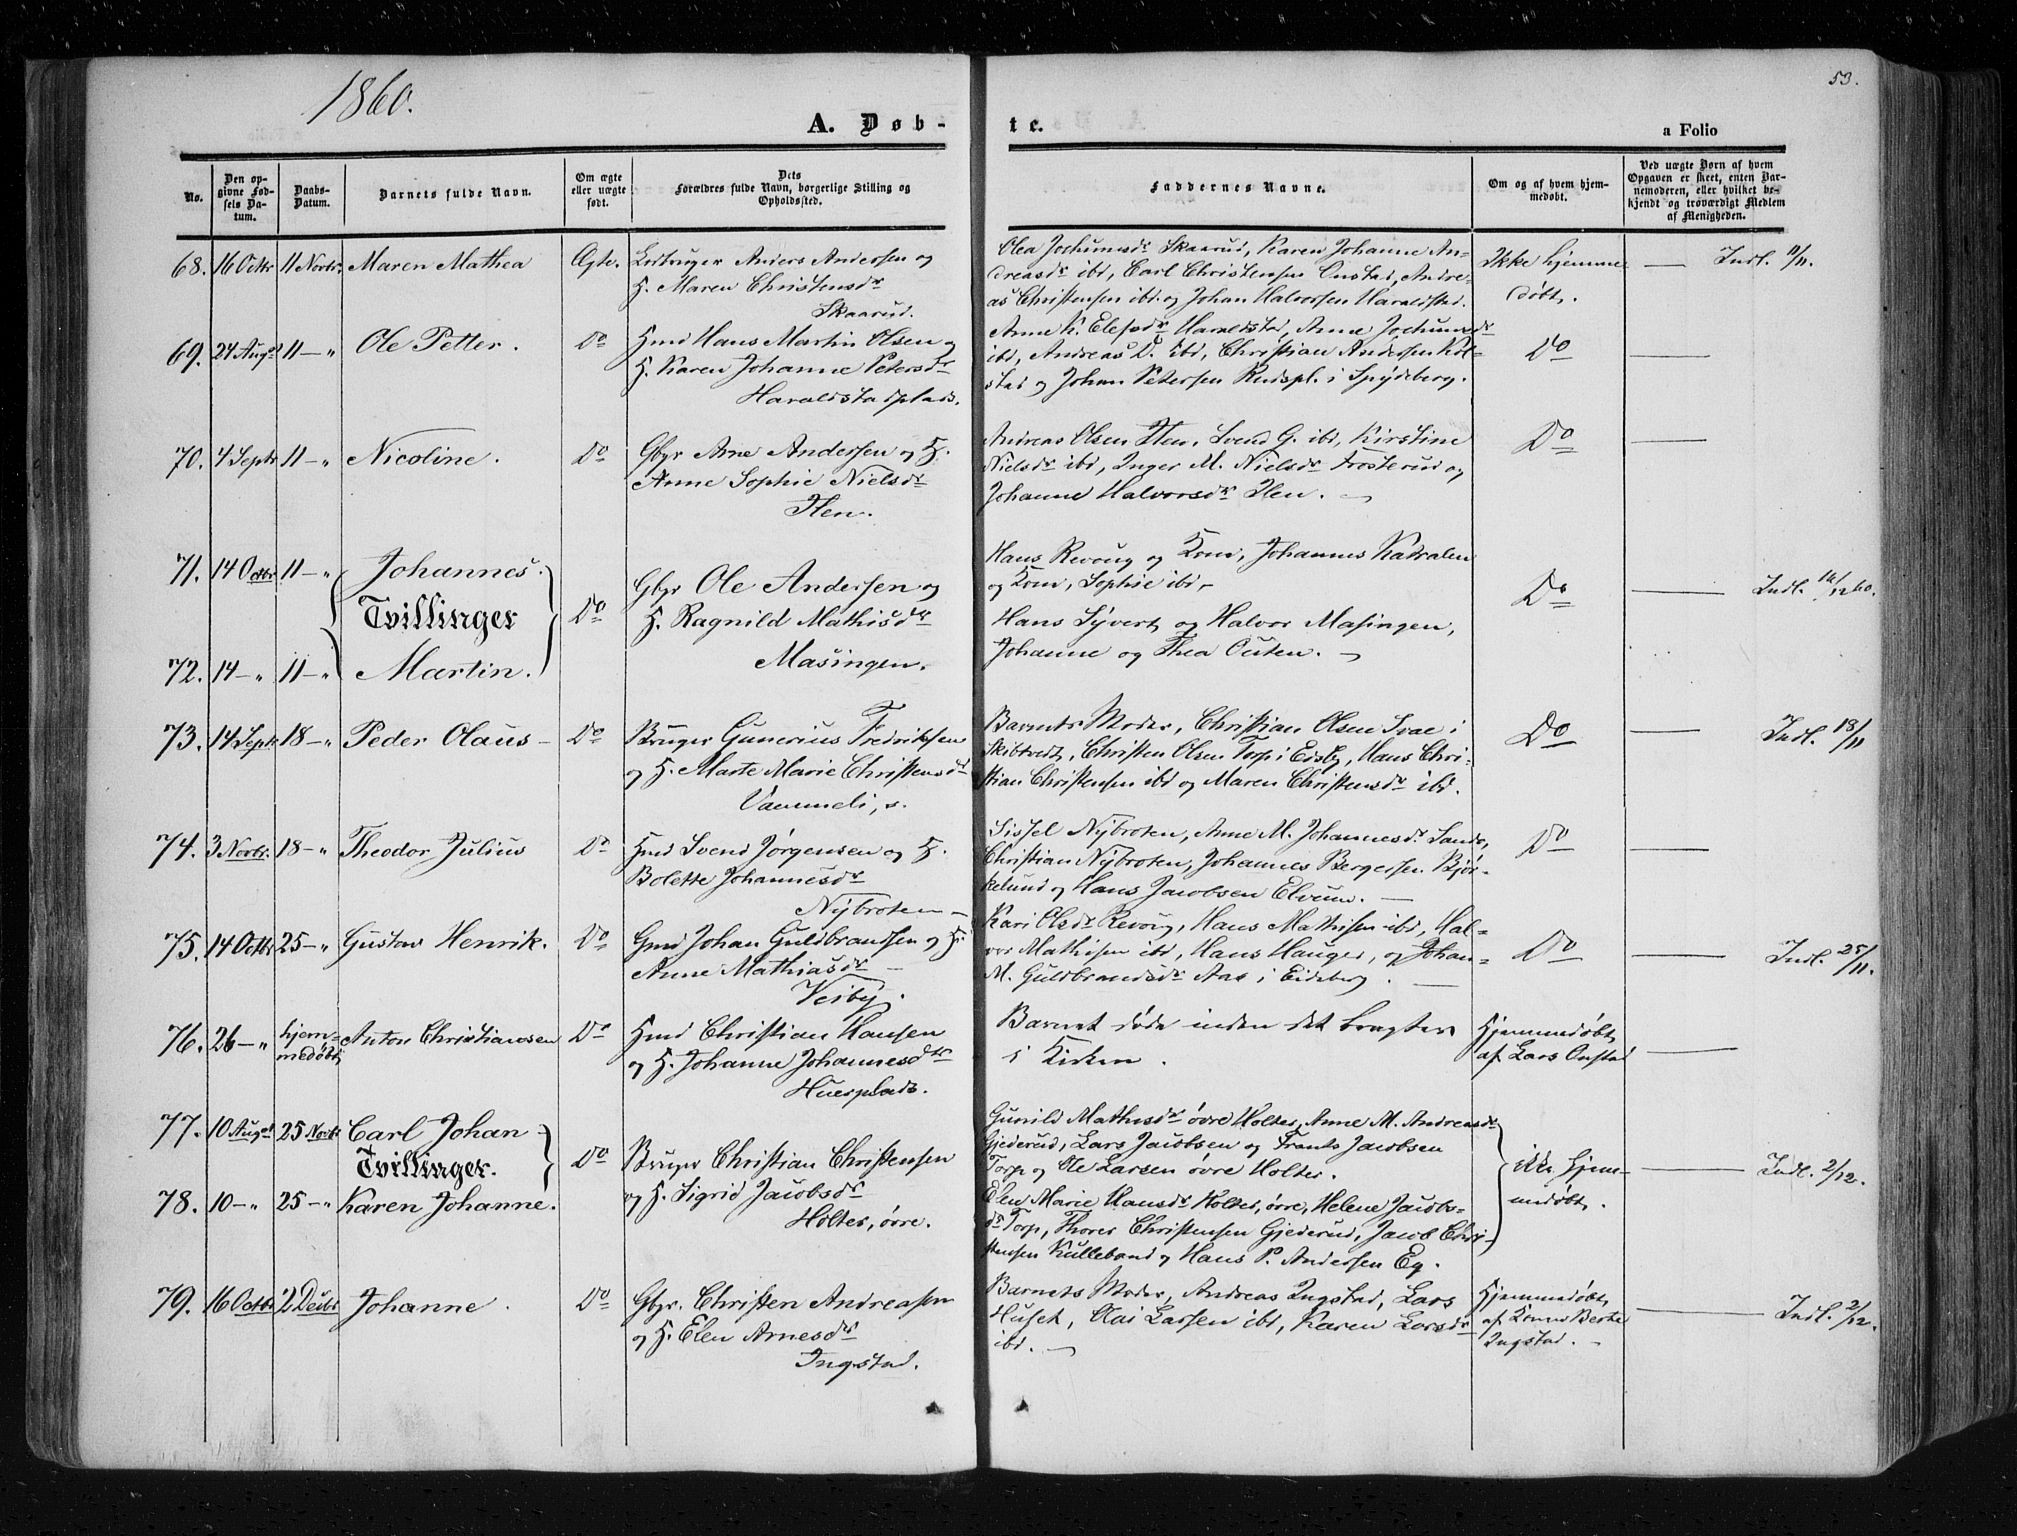 1860.
53.
A. Døb-
te.
a Folio
No.
Den op-
givne Fød-
sels Da-
tum.
Daabs-
Datum.
Barnets fulde Navn.
Om ægte
eller uægte
født.
Dets
Forældres fulde Navn, borgerlige Stilling og
Opholdssted.
Faddernes Navne.
Om og af hvem hjem-
medøbt.
Ved uægte Børn af hvem
Opgaven er skeet, enten Bar-
nemoderen, eller hvilket be-
kjendt og troværdigt Medlem
af Menigheden.
68. 16 Octbr 11 Novbr. Maren Mathea Ægte. Anders Andersen og
H. Maren Christensdr
Skaarud.
Olea Jochumsdr Skaarud, Karen Johanne An-
dreasdr ibd, Carl Christensen Onstad, Andre-
as Christensen ibd. og Johan Halvorsen Haraldstad.
Ikke hjemme
døbt. — Indl. 11/11.
69. 24 Augst 11 — " Ole Petter. Do Hmd Hans Martin Olsen og
H. Karen Johanne Petersdr
Haraldstadplads.
Anne K. Elefsdr Haraldstad, Anne Jochumsdr
ibd, Andreas D. ibd, Christian Andersen Kol-
stad og Johan Petersen Rudspl. i Spydeberg.
Do —
70. 4 Septr 11 — " Nicoline. Do Gbgr Arne Andersen og H.
Anne Sophie Nielsdr
Hen.
Andreas Olsen Hen, Svend G. ibd, Kirstine
Nielsdr ibd, Inger M. Nielsdr Frosterud og
Johanne Halvorsdr Hen. —
Do —
71. 14 Octbr 11 — " Johannes.
Tvillinger
72. 14 — " 11 — " Martin.
Do
Gbgr Ole Andersen og
H. Ragnild Mathisdr
Masingen.
Hans Revoug og Kone, Johannes Katralen
og Kone, Sophie ibd, —
Hans Syvert og Halvor Masingen,
Johanne og Thea Outen. —
Do — Indl. 16/12 60.
73. 14 Septr 18 — " Peder Olaus — Do Bruger Gunerius Fredriksen
og H. Marte Marie Christensdr
Vammeli, s.
Barnets Moder, Christian Olsen Svae i
Skibtvedt, Christen Olsen Torp i Eidsbg, Hans Chri-
stian Christensen ibd og Maren Christensdr ibd.
Do — Indl. 18/11
74. 3 Novbr. 18 — " Theodor Julius Do Hmd Svend Jørgensen og H.
Bolette Johannesdr
Nybroten —
Sissel Nybroten, Anne M. Johannesdr Sande,
Christian Nybroten, Johannes Bergersen Bjør-
kelund og Hans Jacobsen Elvum. —
Do —
75. 14 Octbr 25 — " Gustav Henrik. Do Gmd Johan Guldbrandsen og H.
Anne Mathiasdr —
Veiby.
Kari Olsdr Revoug, Hans Mathisen ibd, Hal-
vor Mathisen ibd, Hans Hauger, og Johan-
M. Guldbrandsdr Aas i Eidsberg. —
Do — Indl. 25/11.
76. 26 — " hjem-
medøbt Anton Christiansen Do Hmd Christian Hansen
og H. Johanne Johannesdtr
Huerplads.
Barnet døde inden det bragtes
i Kirken.
Hjemmedøbt
af Lars Onstad —
77. 10 Augst 25 Novbr Carl Johan —
Tvillinger.
78. 10 — " 25 — " Karen Johanne.
Do
Bruger Christian Christensen
og H. Sigrid Jacobsdr
Holter, øvre.
Gunild Mathisdr øvre Holter, Anne M. Andreasdr
Gjederud, Lars Jacobsen og Frants Jacobsen
Torp og Ole Larsen øvre Holter.
Elen Marie Hansdr Holter, øvre, Helene Jacobs-
dr Torp, Thorer Christensen Gjederud, Jacob Chri-
stensen Kulleband og Hans P. Andersen Eg.
ikke hjem-
medøbt. — Indl. 2/12.
79. 16 Octbr 2 Decbr Johanne. Do Gbgr. Christen Andreasen
og H. Elen Arnesdr
Ingstad.
Barnets Moder, Andreas Ingstad, Lars
Huset, Olai Larsen ibd, Karen Larsdr
ibd. —
Hjemmedøbt
af Konne Berte
Ingstad. — — Indl. 2/12.